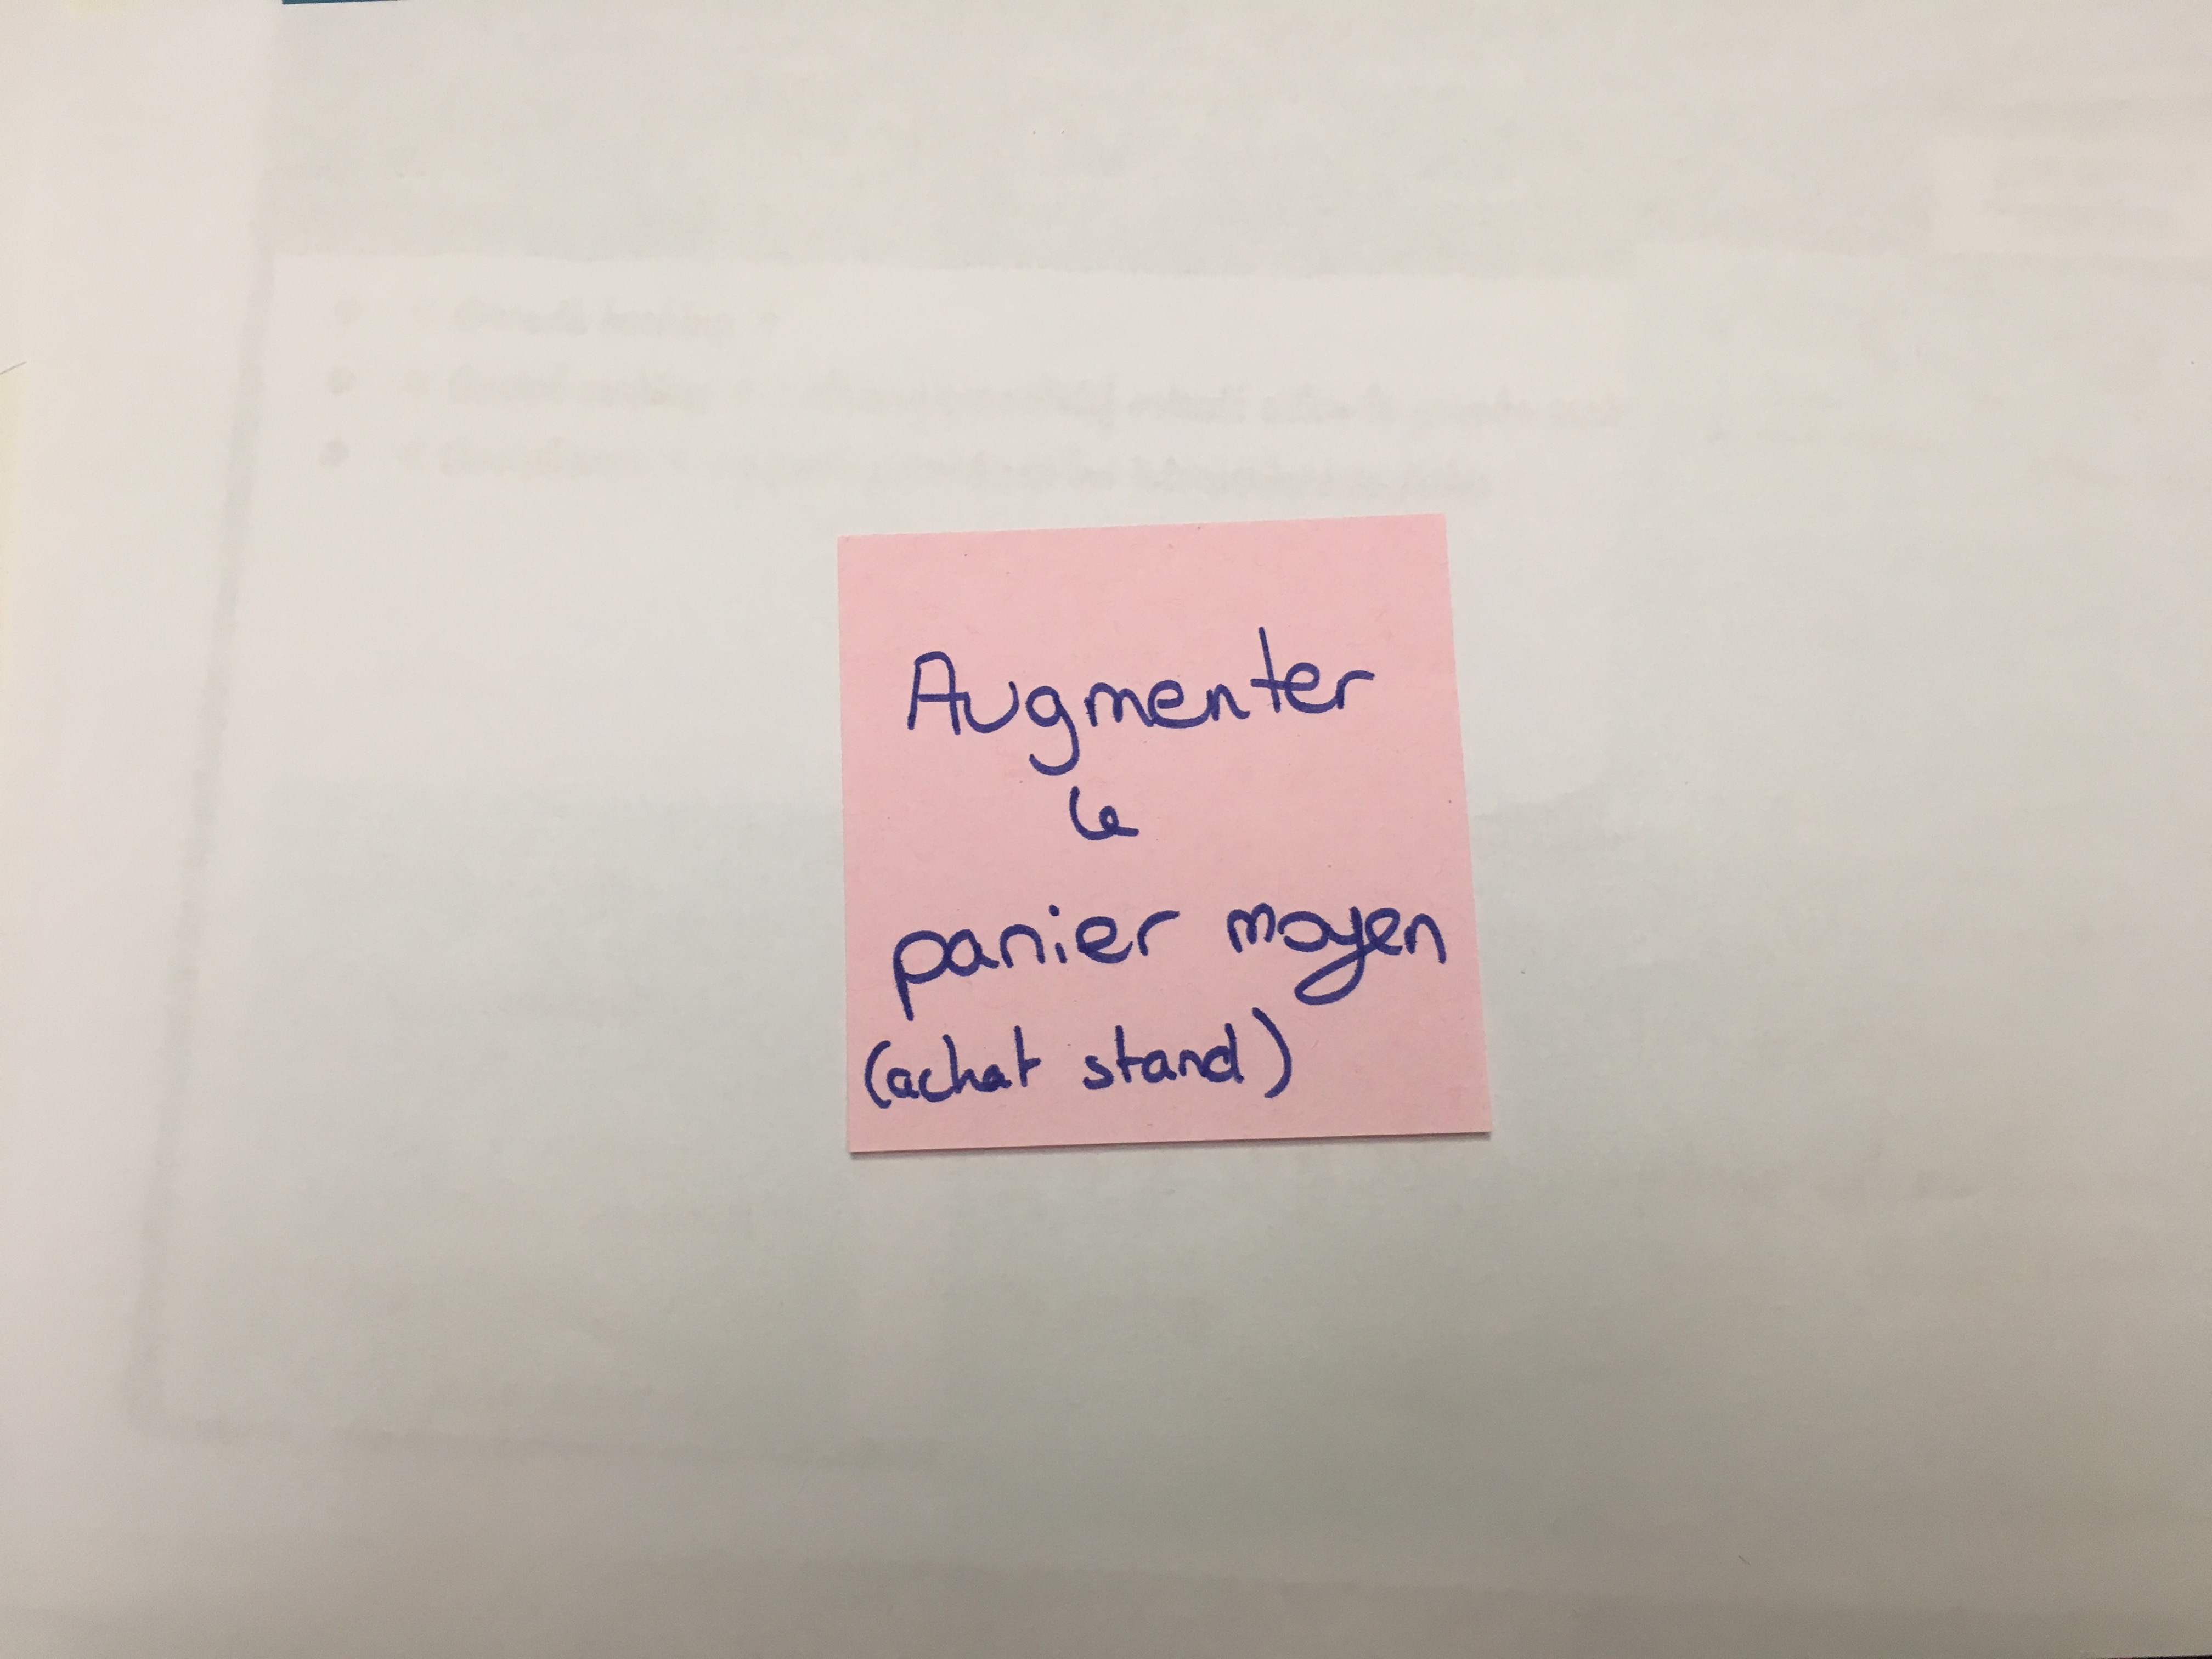 Augmenter
le
panier moyen
(achat stand)